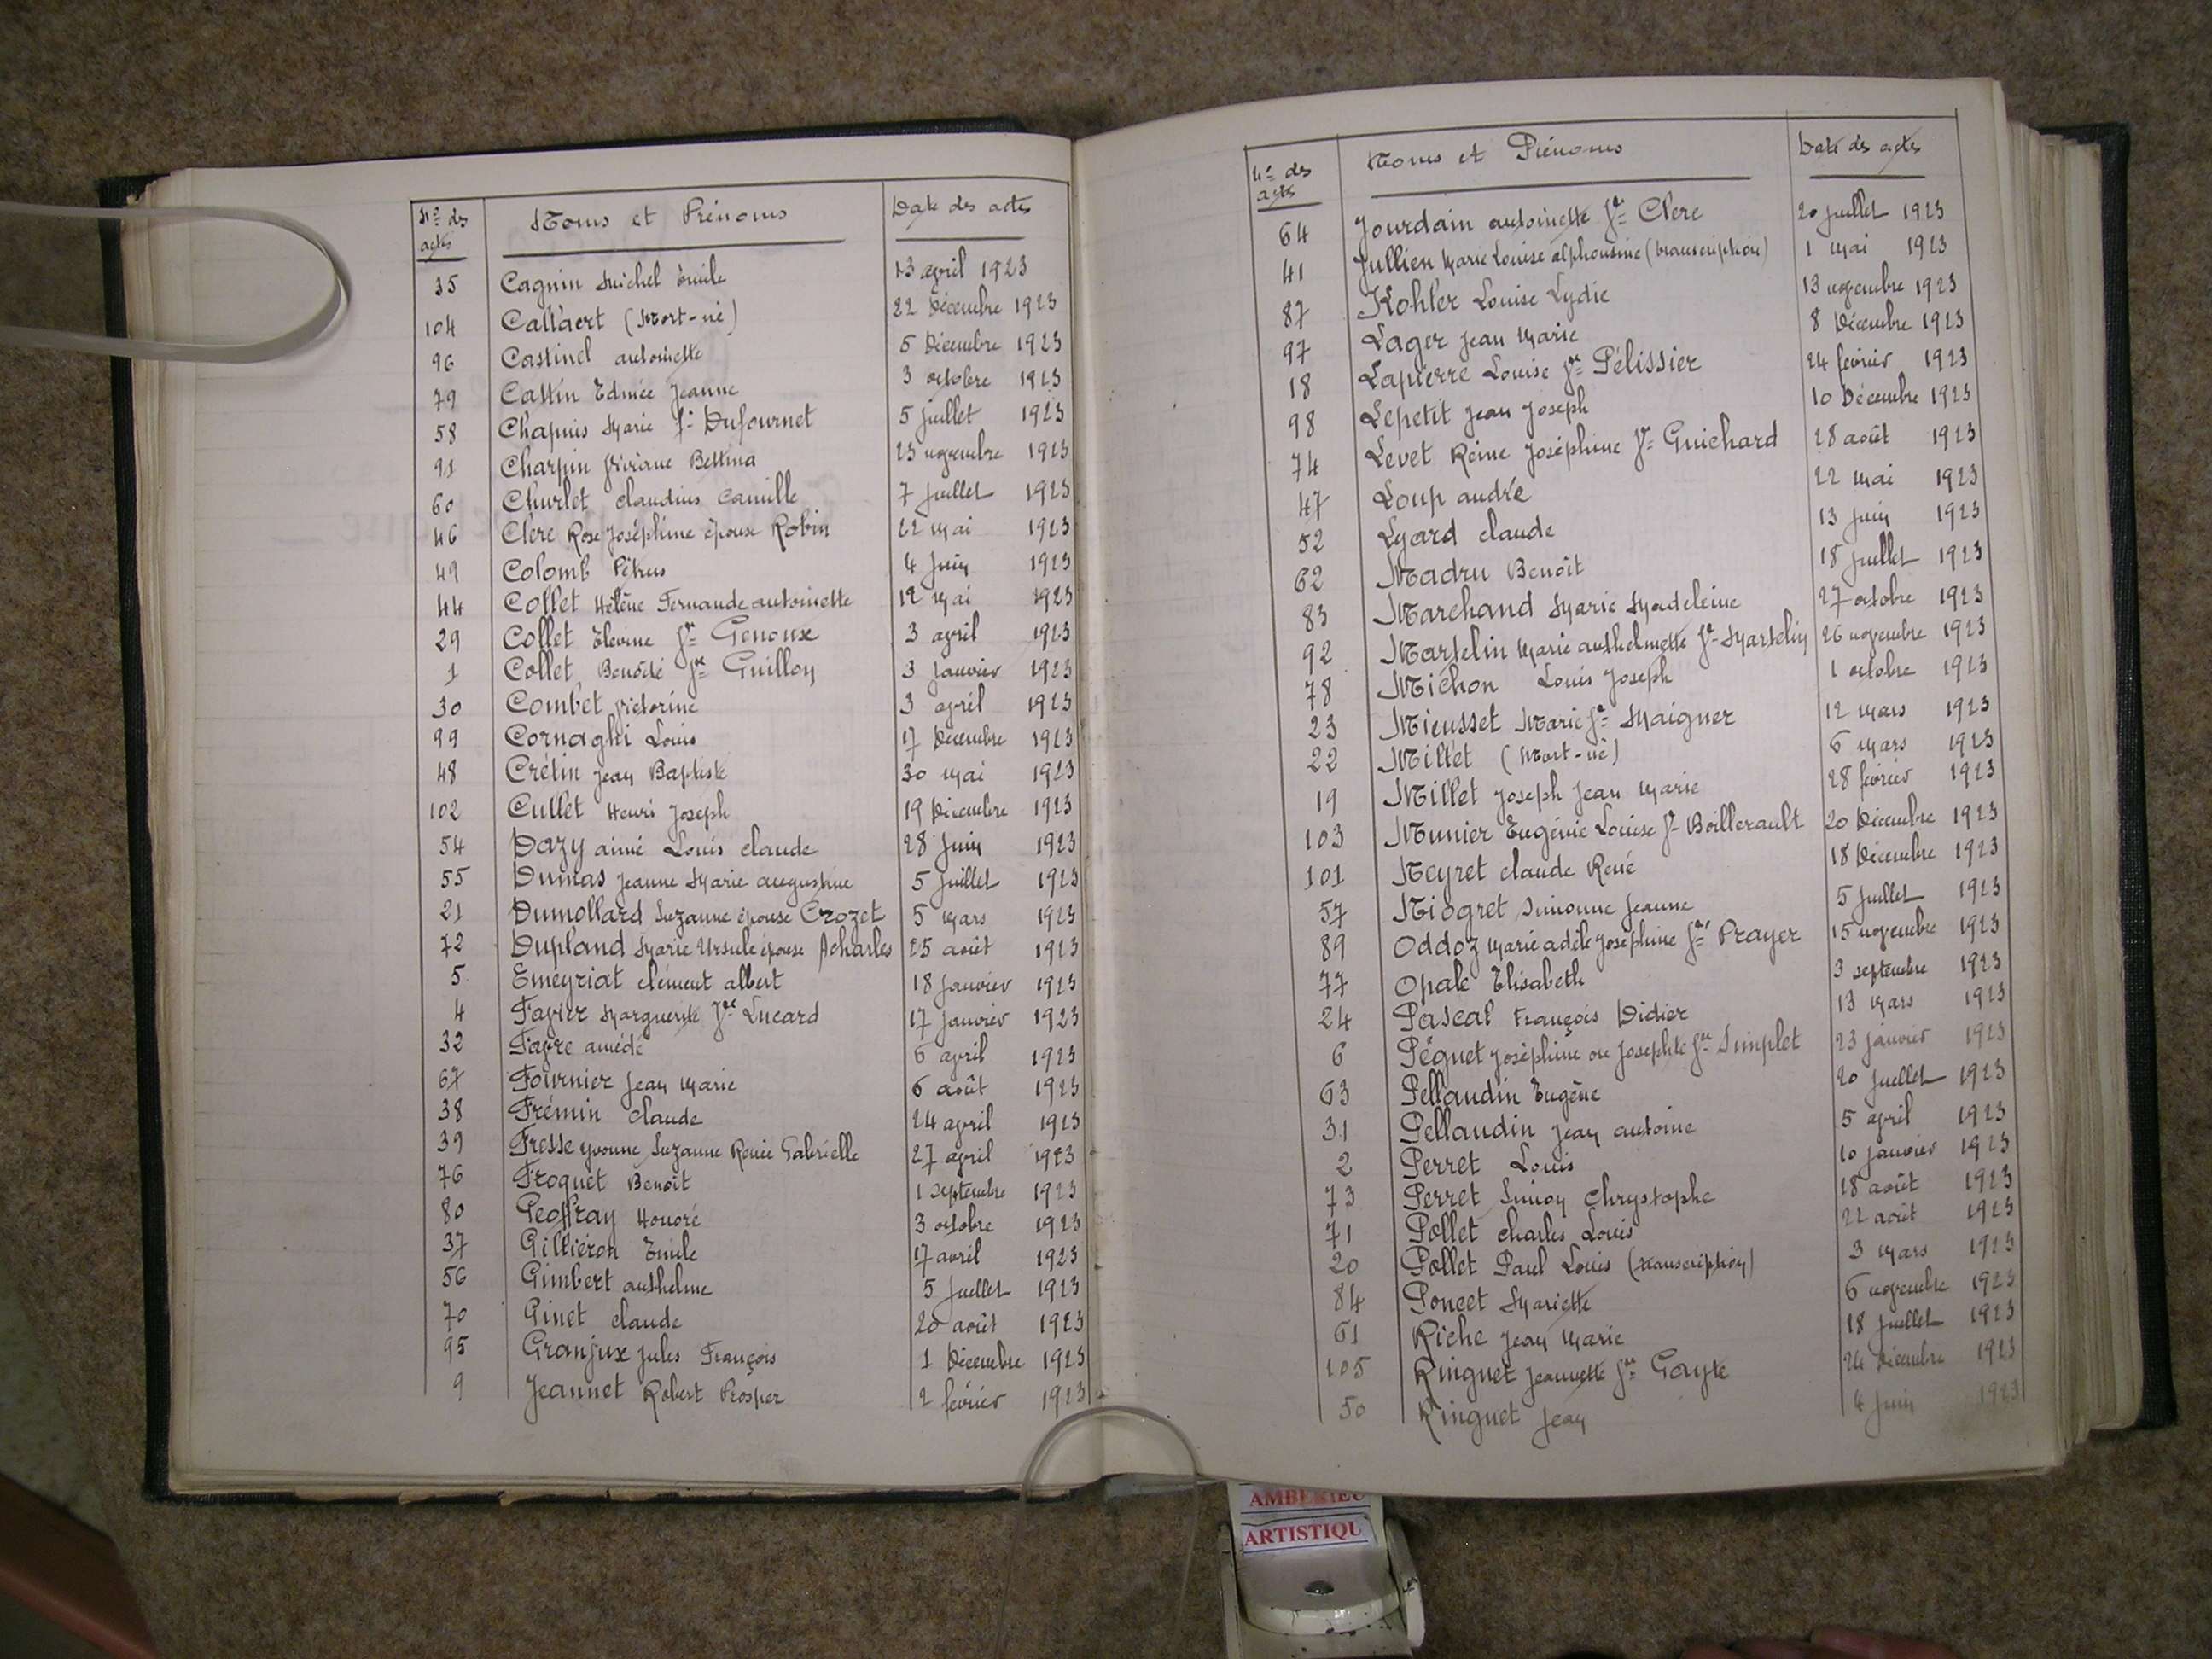 Nos des actes Noms et Prénoms Date des actes
35 Cagnin Michel Emile 13 avril 1923
104 Callaert (Mort-né) 22 Décembre 1923
96 Castinel antoinette 5 Décembre 1923
79 Cattin Edmée Jeanne 3 octobre 1923
58 Chapuis Marie fe Dufournet 5 juillet 1923
91 Charpin Viviane Bettina 23 novembre 1923
60 Churlet claudius Camille 7 juillet 1923
46 Clerc Rose Joséphine épouse Robin 22 Mai 1923
49 Colomb Pétrus 4 Juin 1923
44 Collet Hélène Fernande antoinette 12 Mai 1923
29 Collet Elevine Ve Genoux 3 avril 1923
1 Collet Benoîte Ve Guilloy 3 Janvier 1923
30 Combet Victorine 3 avril 1923
99 Cornaghi Louis 17 Décembre 1923
48 Crétin Jean Baptiste 30 Mai 1923
102 Cullet Henri Joseph 19 Décembre 1923
54 Dazy aimé Louis claude 28 Juin 1923
55 Dumas Jeanne Marie augustine 5 Juillet 1923
21 Dumollard Suzanne épouse Crozet 5 Mars 1923
72 Dupland Marie Ursule épouse Acharles 25 août 1923
5 Emeyriat clément albert 18 Janvier 1923
4 Favier Marguerite Ve Lucard 17 Janvier 1923
32 Favre amédé 6 avril 1923
67 Fournier Jean Marie 6 août 1923
38 Frémin Claude 24 avril 1923
39 Fresse Yvonne Suzanne Renée Gabrielle 27 avril 1923
76 Froquet Benoît 1 septembre 1923
80 Geoffray Honoré 3 octobre 1923
37 Gilliéron Emile 17 avril 1923
56 Gimbert anthelme 5 Juillet 1923
70 Ginet claude 20 août 1923
95 Granjux Jules François 1 Décembre 1923
9 Jeannet Robert Prosper 2 février 1923
Nos des actes Noms et Prénoms Date des actes
64 Jourdain antoinette Ve Clerc 20 Juillet 1923
41 Jullien Marie Louise alphonsine (transcription) 1 Mai 1923
87 Kohler Louise Lydie 13 novembre 1923
97 Lager Jean Marie 8 Décembre 1923
18 Lapierre Louise Ve Pélissier 24 février 1923
98 Lepetit Jean Joseph 10 Décembre 1923
74 Levet Reine Joséphine Ve Guichard 28 août 1923
47 Loup andré 22 Mai 1923
52 Lyard claude 13 Juin 1923
62 Madru Benoît 18 Juillet 1923
83 Marchand Marie Madeleine 27 octobre 1923
92 Martelin Marie anthelmette Ve Martelin 26 novembre 1923
78 Michon Louis Joseph 1 octobre 1923
23 Mieusset Marie Ve Maigner 12 Mars 1923
22 Millet (Mort-né) 6 Mars 1923
19 Millet Joseph Jean Marie 28 février 1923
103 Munier Eugénie Louise Ve Boillerault 20 Décembre 1923
101 Neyret claude René 18 Décembre 1923
57 Niogret Simonne Jeanne 5 Juillet 1923
89 Oddoz Marie adèle Joséphine Ve Prayer 15 novembre 1923
77 Opale Elisabeth 3 septembre 1923
24 Pascal François Didier 13 Mars 1923
6 Péguet Joséphine ou Josephte Ve Simplet 23 Janvier 1923
63 Pellaudin Eugène 20 Juillet 1923
31 Pellaudin Jean antoine 5 avril 1923
2 Perret Louis 10 Janvier 1923
73 Perret Simon Chrystophe 28 août 1923
71 Pollet Charles Louis 22 août 1923
20 Pollet Paul Louis (transcription) 3 Mars 1923
84 Poncet Mariette 6 novembre 1923
61 Riche Jean Marie 18 Juillet 1923
105 Ringuet Jeannette Ve Goyte 24 Décembre 1923
50 Ringuet Jean 4 Juin 1923
AMBERIEU
ARTISTIQU